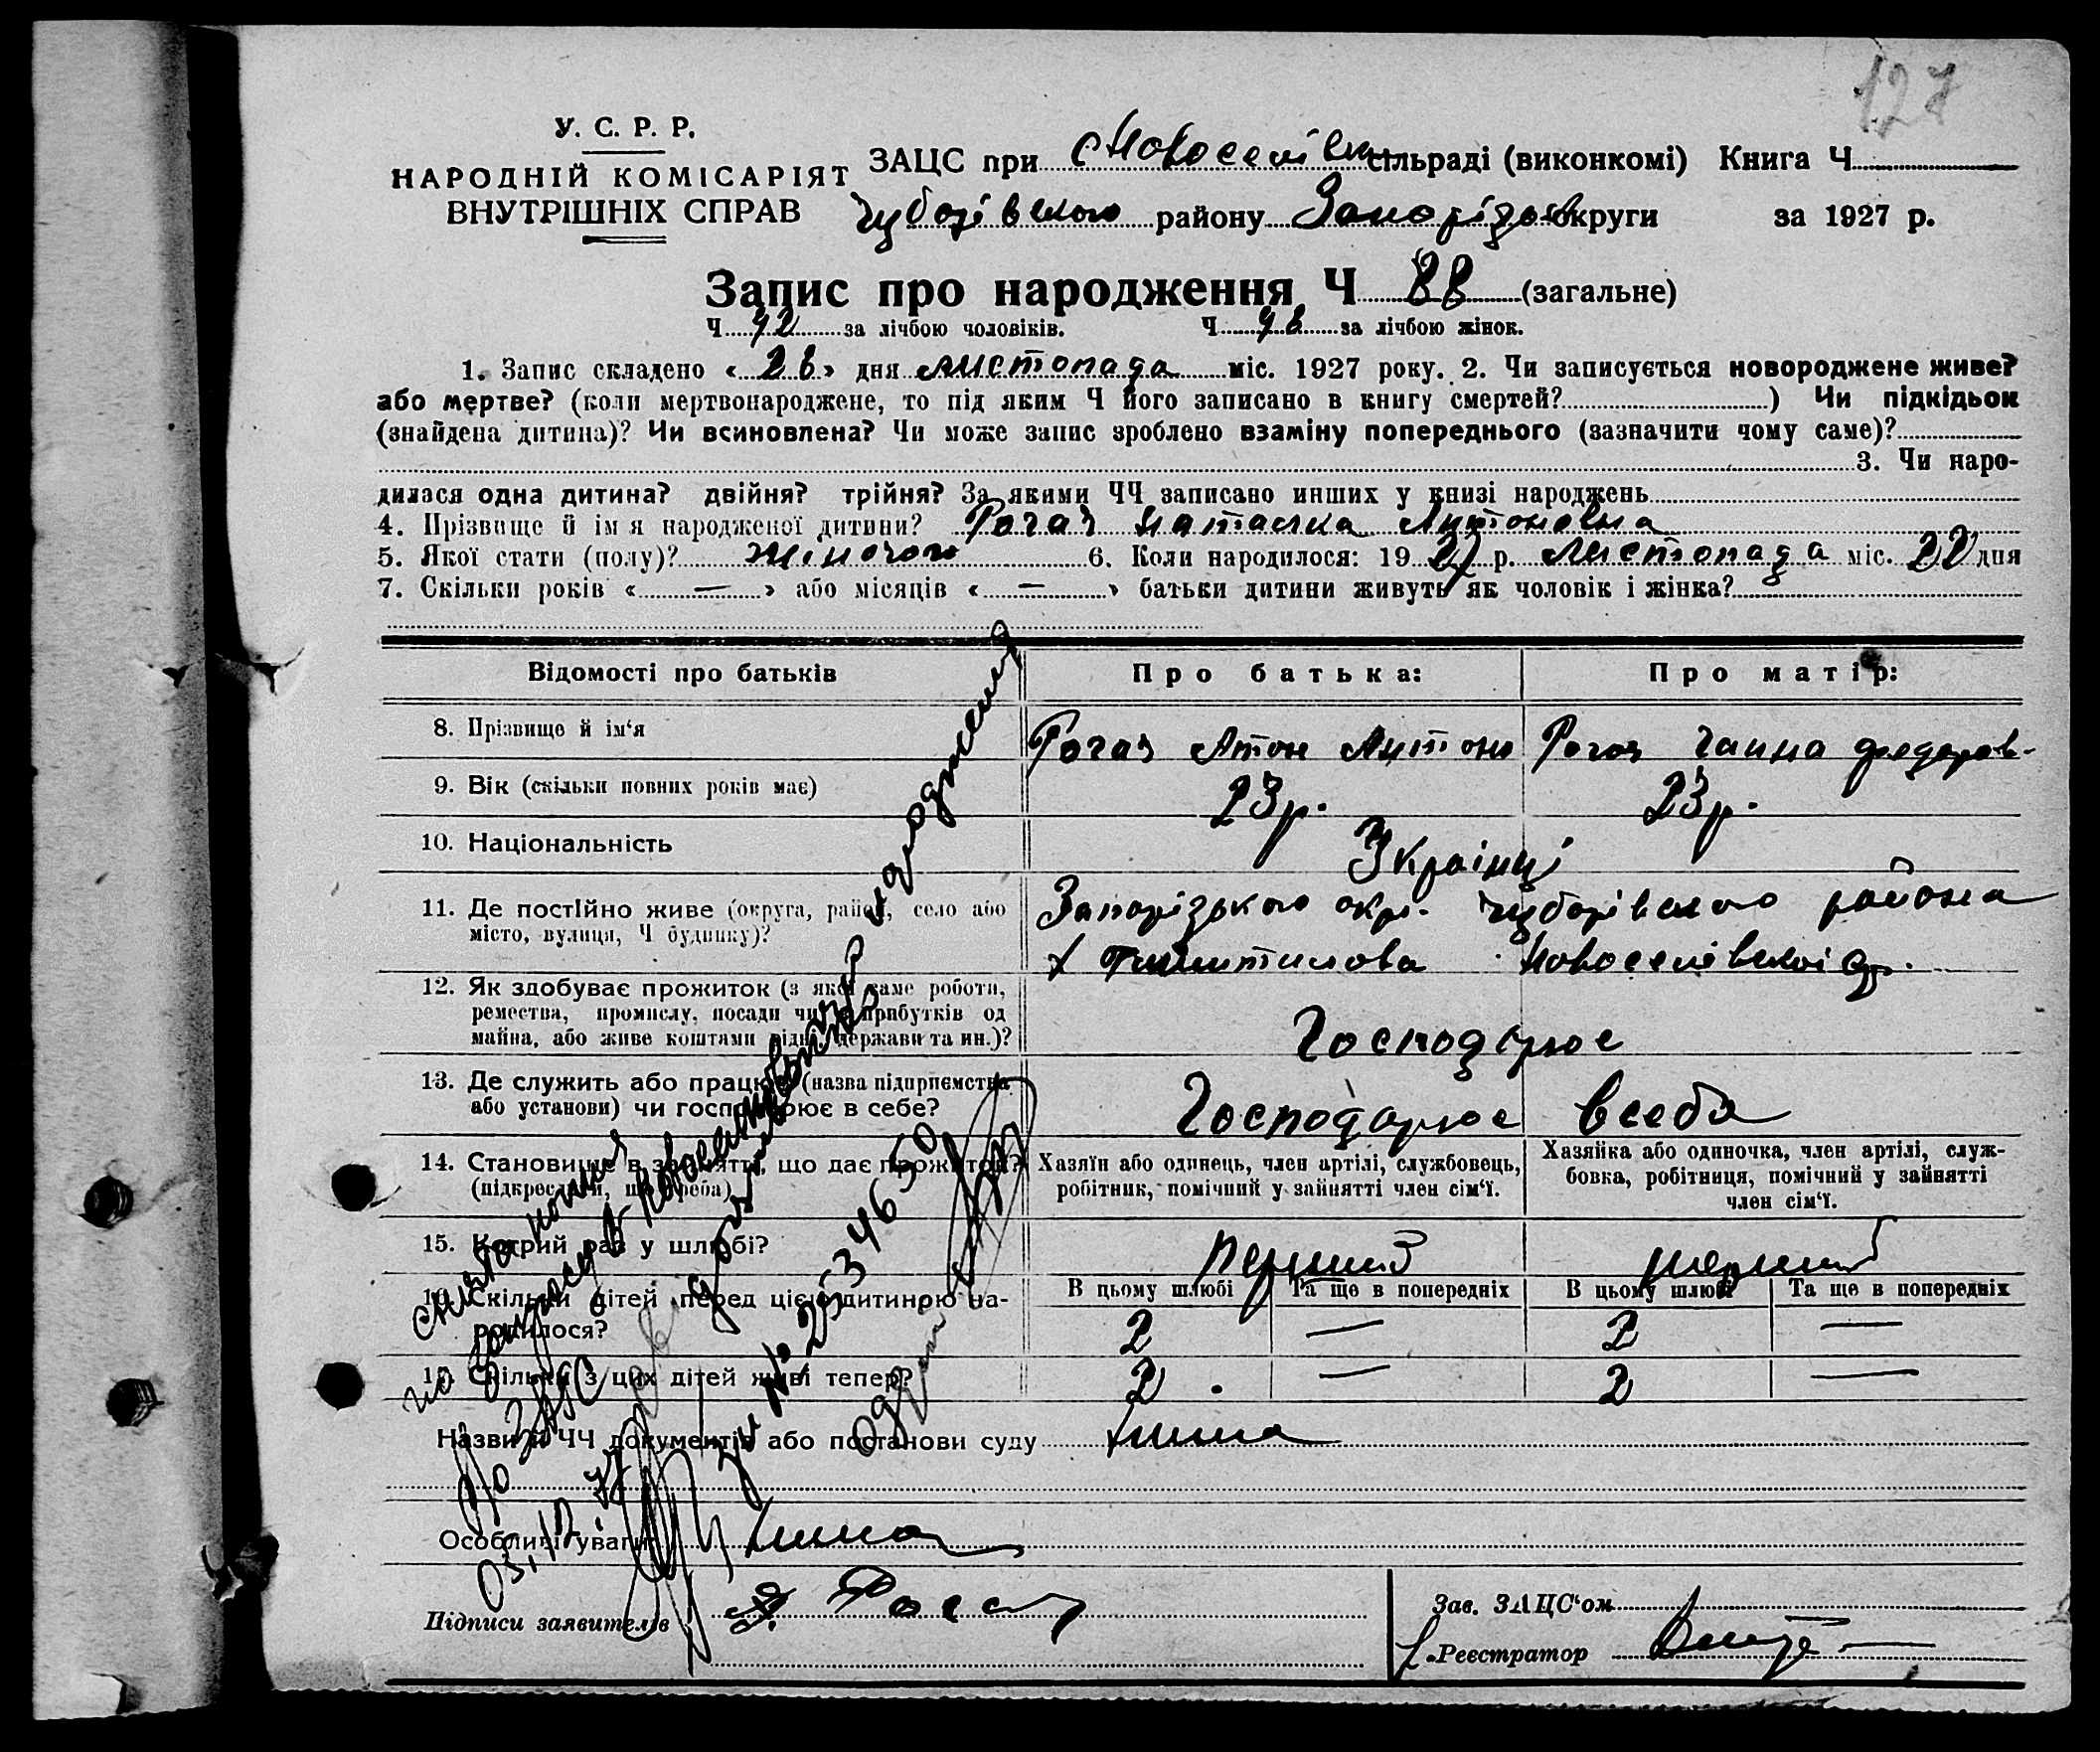 127
У. С. Р. Р.
НАРОДНІЙ КОМІСАРІЯТ
ВНУТРІШНІХ СПРАВ
ЗАЦС при с Новоселівк сільраді (виконкомі) Книга Ч
району Запорізьк округи за 1927 р.
Запис про народження Ч 88 (загальне)
Ч 42 за лічбою чоловіків. Ч 46 за лічбою жінок.
1. Запис складено « 26 » дня листопада міс. 1927 року. 2. Чи записується новороджене живе?
або мертве? (коли мертвонароджене, то під яким Ч його записано в книгу смертей? ) Чи підкідьок
(знайдена дитина)? Чи всиновлена? Чи може запис зроблено взаміну попереднього (зазначити чому саме)?
3. Чи наро-
дилася одна дитина? двійня? трійня? За якими ЧЧ записано инших у книзі народжень
4. Прізвище й ім я народженої дитини? Рогач Наталка Антоновна
5. Якої стати (полу)? жіночого 6. Коли народилося: 19 27 р. Листопада міс. 22 дня
7. Скільки років « — » або місяців « — » батьки дитини живуть як чоловік і жінка?
Відомості про батьків Про батька: Про матір:
8. Прізвище й ім‘я Рогач Антон Антоно Рогач Ганна Федоров-
9. Вік (скільки повних років має) 23 р. 23 р.
10. Національність Україці
11. Де постІйно живе (округа, район, село або Запорізького окр. району
місто, вулиця, Ч будинку)? х Новоселівської
12. Як здобуває прожиток (з якої саме роботи,
ремества, промислу, посади чи з прибутків од
майна, або живе коштами рідні, держави та ин.)? Господарює
13. Де служить або працює (назва підприємства
або установи) чи господарює в себе? Господарює в себе
14. Становище в занятті, що дає прожиток?
(підкреслити, що треба)
Хазяїн або одинець, член артілі, службовець,
робітник, помічний у зайнятті член сім‘ї.
Хазяйка або одиночка, член артілі, служ-
бовка, робітниця, помічний у зайнятті
член сім‘ї.
15. Котрий раз у шлюбі? перший перший
16. Скільки дітей перед цією дитиною на-
родилося?
В цьому шлюбі Та ще в попередніх В цьому шлюбі Та ще в попередніх
2 — 2 —
17. Скільки з цих дітей живі тепер? 2 — 2 —
Назви й ЧЧ документів або постанови суду Нема
Особливі уваги: Нема
Підписи заявителів А Рогач
Зав. ЗАЦС‘ом
Реєстратор
снята копия
ЗАГС
№ 2534650